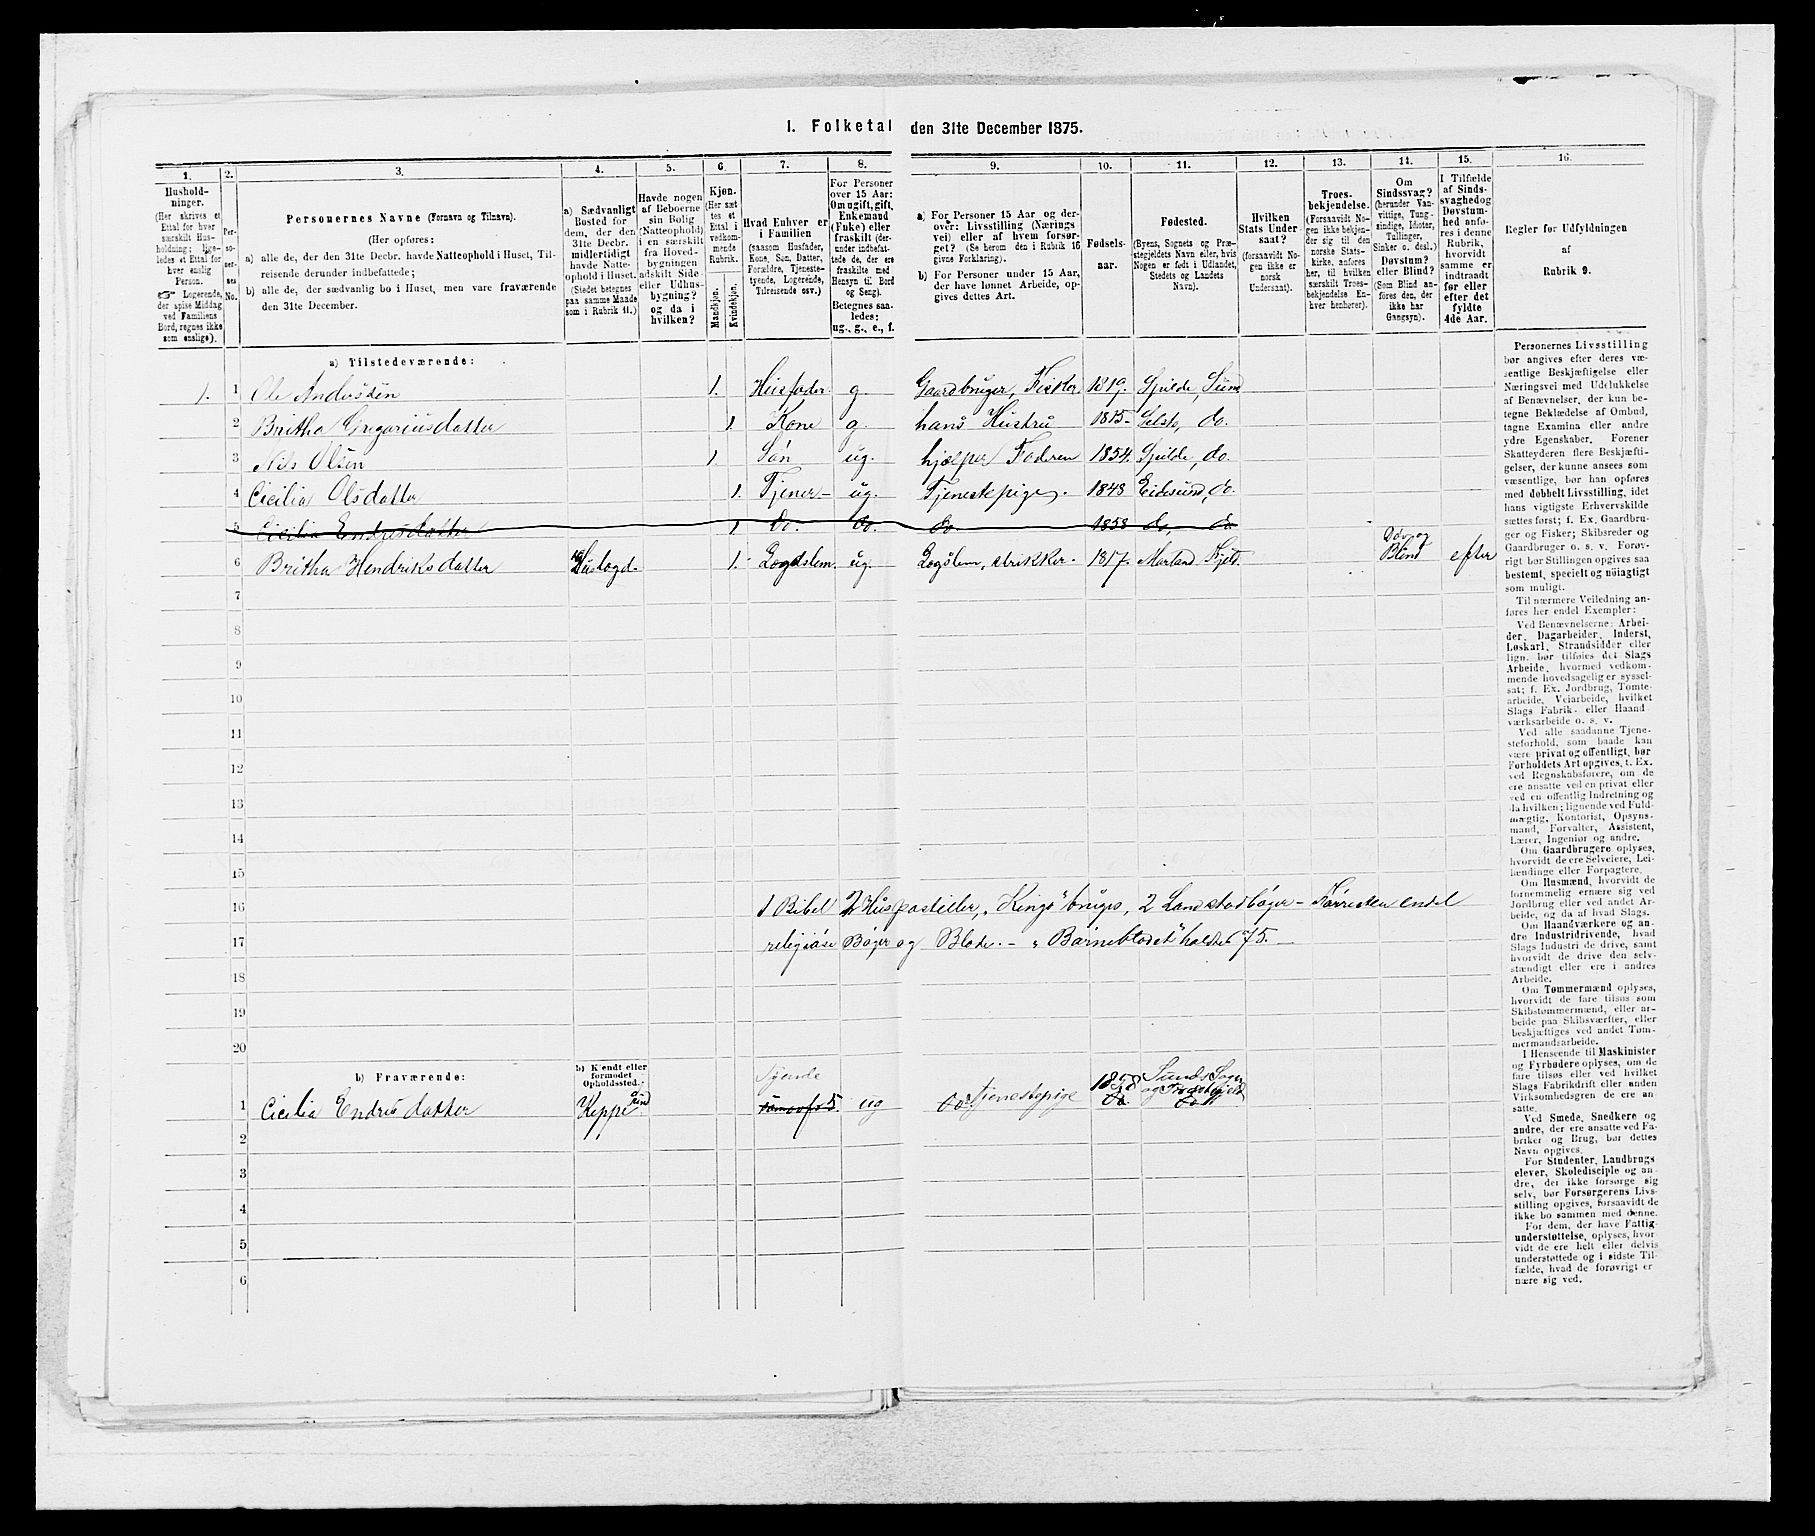 1. Folketal den 31te December 1875.
1. 2. 3. 4. 5. 6. 7. 8. 9. 10. 11. 12. 13. 14. 15. 16.
Hushold-
ninger.
(Her skrives et
Ettal for hver
særskilt Hus-
holdning; lige-
ledes et Ettal for
hver enslig
Person.
Logerende,
der spise Middag
ved Familiens
Bord, regnes ikke
som enslige).
Per-
so-
ner-
nes
No.
Personernes Navne (Fornavn og Tilnavn).
(Her opføres:
a) alle de, der den 31te Decbr. havde Natteophold i Huset, Til-
reisende derunder indbefattede;
b) alle de, der sædvanlig bo i Huset, men vare fraværende
den 31te December.
a) Sædvanligt
Bosted for
dem, der den
31te Decbr.
midlertidigt
havde Natte-
ophold i Huset.
(Stedet betegnes
paa samme Maade
som i Rubrik 11.)
Havde nogen
af Beboerne
sin Bolig
(Natteophold)
i en særskilt
fra Hoved-
bygningen
adskilt Side-
eller Udhus-
bygning?
og da i
hvilken?
Kjøn.
(Her sæt-
tes et
Ettal i
vedkom-
mende
Rubrik.
Mandkjøn.
Kvindekjøn.
Hvad Enhver er
i Familien
(saasom Husfader,
Kone, Søn, Datter,
Forældre, Tjeneste-
tyende, Logerende,
Tilreisende osv.)
For Personer
over 15 Aar:
Om ugift, gift,
Enkemand
(Enke) eller
fraskilt (der-
under indbefat-
tede de, der ere
fraskilte med
Hensyn til Bord
og Seng).
Betegnes saa-
ledes:
ug., g., e., f.
a) For Personer 15 Aar og der-
over: Livsstilling (Nærings
vei) eller af hvem forsør-
get? (Se herom den i Rubrik 16
givne Forklaring).
b) For Personer under 15 Aar,
der have lønnet Arbeide, op-
gives dettes Art.
Fødsels-
aar.
Fødested.
(Byens, Sognets og Præ-
stegjeldets Navn eller, hvis
Nogen er født i Udlandet,
Stedets og Landets
Navn).
Hvilken
Stats Under-
saat?
(forsaavidt No-
gen ikke er
norsk
Undersaat).
Troes-
bekjendelse.
(Forsaavidt No-
gen ikke bekjen-
der sig til den
norske Stats-
kirke, anføres
her, til hvilken
særskilt Troes-
bekjendelse En-
hver henhører).
Om
Sindssvag?
(herunder Van-
vittige, Tung-
sindige, Idioter,
Tullinger,
Sinker o. desl.)
Døvstum?
eller Blind?
(Som Blind an-
føres den, der
ikke har
Gangsyn).
I Tilfælde
af Sinds-
svaghed og
Døvstum-
hed anfø-
res i denne
Rubrik,
hvorvidt
samme er
indtraadt
før eller
efter det
fyldte
4de Aar.
Regler for Udfyldningen
af
Rubrik 9.
a) Tilstedeværende:
1. 1 Ole Andersen 1. Husfader. g. Gaardbruger, Fisker. 1819. Spilde, Sund
2 Britha Gregoriusdatter 1. Kone g. hans Hustru 1815- Selstø, do.
3 Nils Olsen 1. Søn ug. hjælper Faderen 1854. Spilde, do.
4 Cicilia Olsdatter 1. Tjener- ug. Tjenestepige. 1848 Eidesund, do.
5 Cicilia Endresdatter 1 do. do. do 1858 do, do
6 Britha Hendriksdatter Huslogd. 1. Logdslem. ug. Logslem, strikker. 1817. Morland. Fjeld. Døv og Blind efter
7
8
9
10
11
12
13
14
15
16 1 Bibel 2 Huspostiller, "Kings" bruges, 2 Landstadbøger - Forresten endel
17 religiøse Bøger og Blade. - "Børnebladet" holdes 75.
18
19
20
b) Fraværende:
b) Kjendt eller
formodet
Opholdssted.
Tjende
1 Cicilia Endresdatter Keppe Sund ug do Tjenestepige 1858 do. Sunds Sogn og Præstegjeld do
2
3
4
5
6
Personernes Livsstilling
bør angives efter deres væ-
sentlige Beskjæftigelse eller
Næringsvei med Udelukkelse
af Benævnelser, der kun be-
tegne Beklædelse af Ombud,
tagne Examina eller andre
ydre Egenskaber. Forener
Skatteyderen flere Beskjæfti-
gelser, der kunne ansees som
væsentlige, bør han opføres
med dobbelt Livsstilling, idet
hans vigtigste Erhvervskilde
sættes først; f. Ex. Gaardbru-
ger og Fisker; Skibsreder og
Gaardbruger o. s. v. Forøv-
rigt bør Stillingen opgives saa
bestemt, specielt og nøiagtigt
som muligt.
Til nærmere Veiledning an-
føres her endel Exempler:
Ved Benævnelserne: Arbei-
der, Dagarbeider, Inderst,
Løskarl, Strandsidder eller
lign. bør tilføies det Slags
Arbeide, hvormed vedkom-
mende hovedsagelig er syssel-
sat; f. Ex. Jordbrug, Tomte-
arbeide, Veiarbeide, hvilket
Slags Fabrik- eller Haand-
værksarbeide o. s. v.
Ved alle saadanne Tjene-
steforhold, som baade kan
være privat og offentligt, bør
Forholdets Art opgives, f. Ex.
ved Regnskabsførere, om de
ere ansatte ved en privat eller
ved en offentlig Indretning og
da hvilken; lignende ved Fuld-
mægtig, Kontorist, Opsyns-
mand, Forvalter, Assistent,
Lærer, Ingeniør og andre.
Om Gaardbrugere oplyses,
hvorvidt de ere Selveiere, Lei-
lændinge eller Forpagtere.
Om Husmænd, hvorvidt de
fornemmelig ernære sig ved
Jordbrug eller ved andet Ar-
beide, og da af hvad Slags.
Om Haandværkere og an-
dre Industridrivende, hvad
Slags Industri de drive, samt
hvorvidt de drive den selv-
stændigt eller ere i andres
Arbeide.
Om Tømmermænd oplyses,
hvorvidt de fare tilsøs som
Skibstømmermænd, eller ar-
beide paa Skibsværfter, eller
beskjæftiges ved andet Tøm-
mermandsarbeide.
I Henseende til Maskinister
og Fyrbødere oplyses, om de
fare tilsøs eller ved hvilket
Slags Fabrikdrift eller anden
Virksomhedsgren de ere an-
satte.
Ved Smede, Snedkere og
andre, der ere ansatte ved Fa-
briker og Brug, bør dettes
Navn opgives.
For Studenter, Landbrugs-
elever, Skoledisciple og an-
dre, der ikke forsørge sig
selv, bør Forsørgerens Livs-
stilling opgives, forsaavidt de
ikke bo sammen med denne.
For dem, der have Fattig-
understøttelse, oplyses, hvor-
vidt de ere helt eller delvis
understøttede og i sidste Til-
fælde, hvad de forøvrigt er-
nære sig ved.